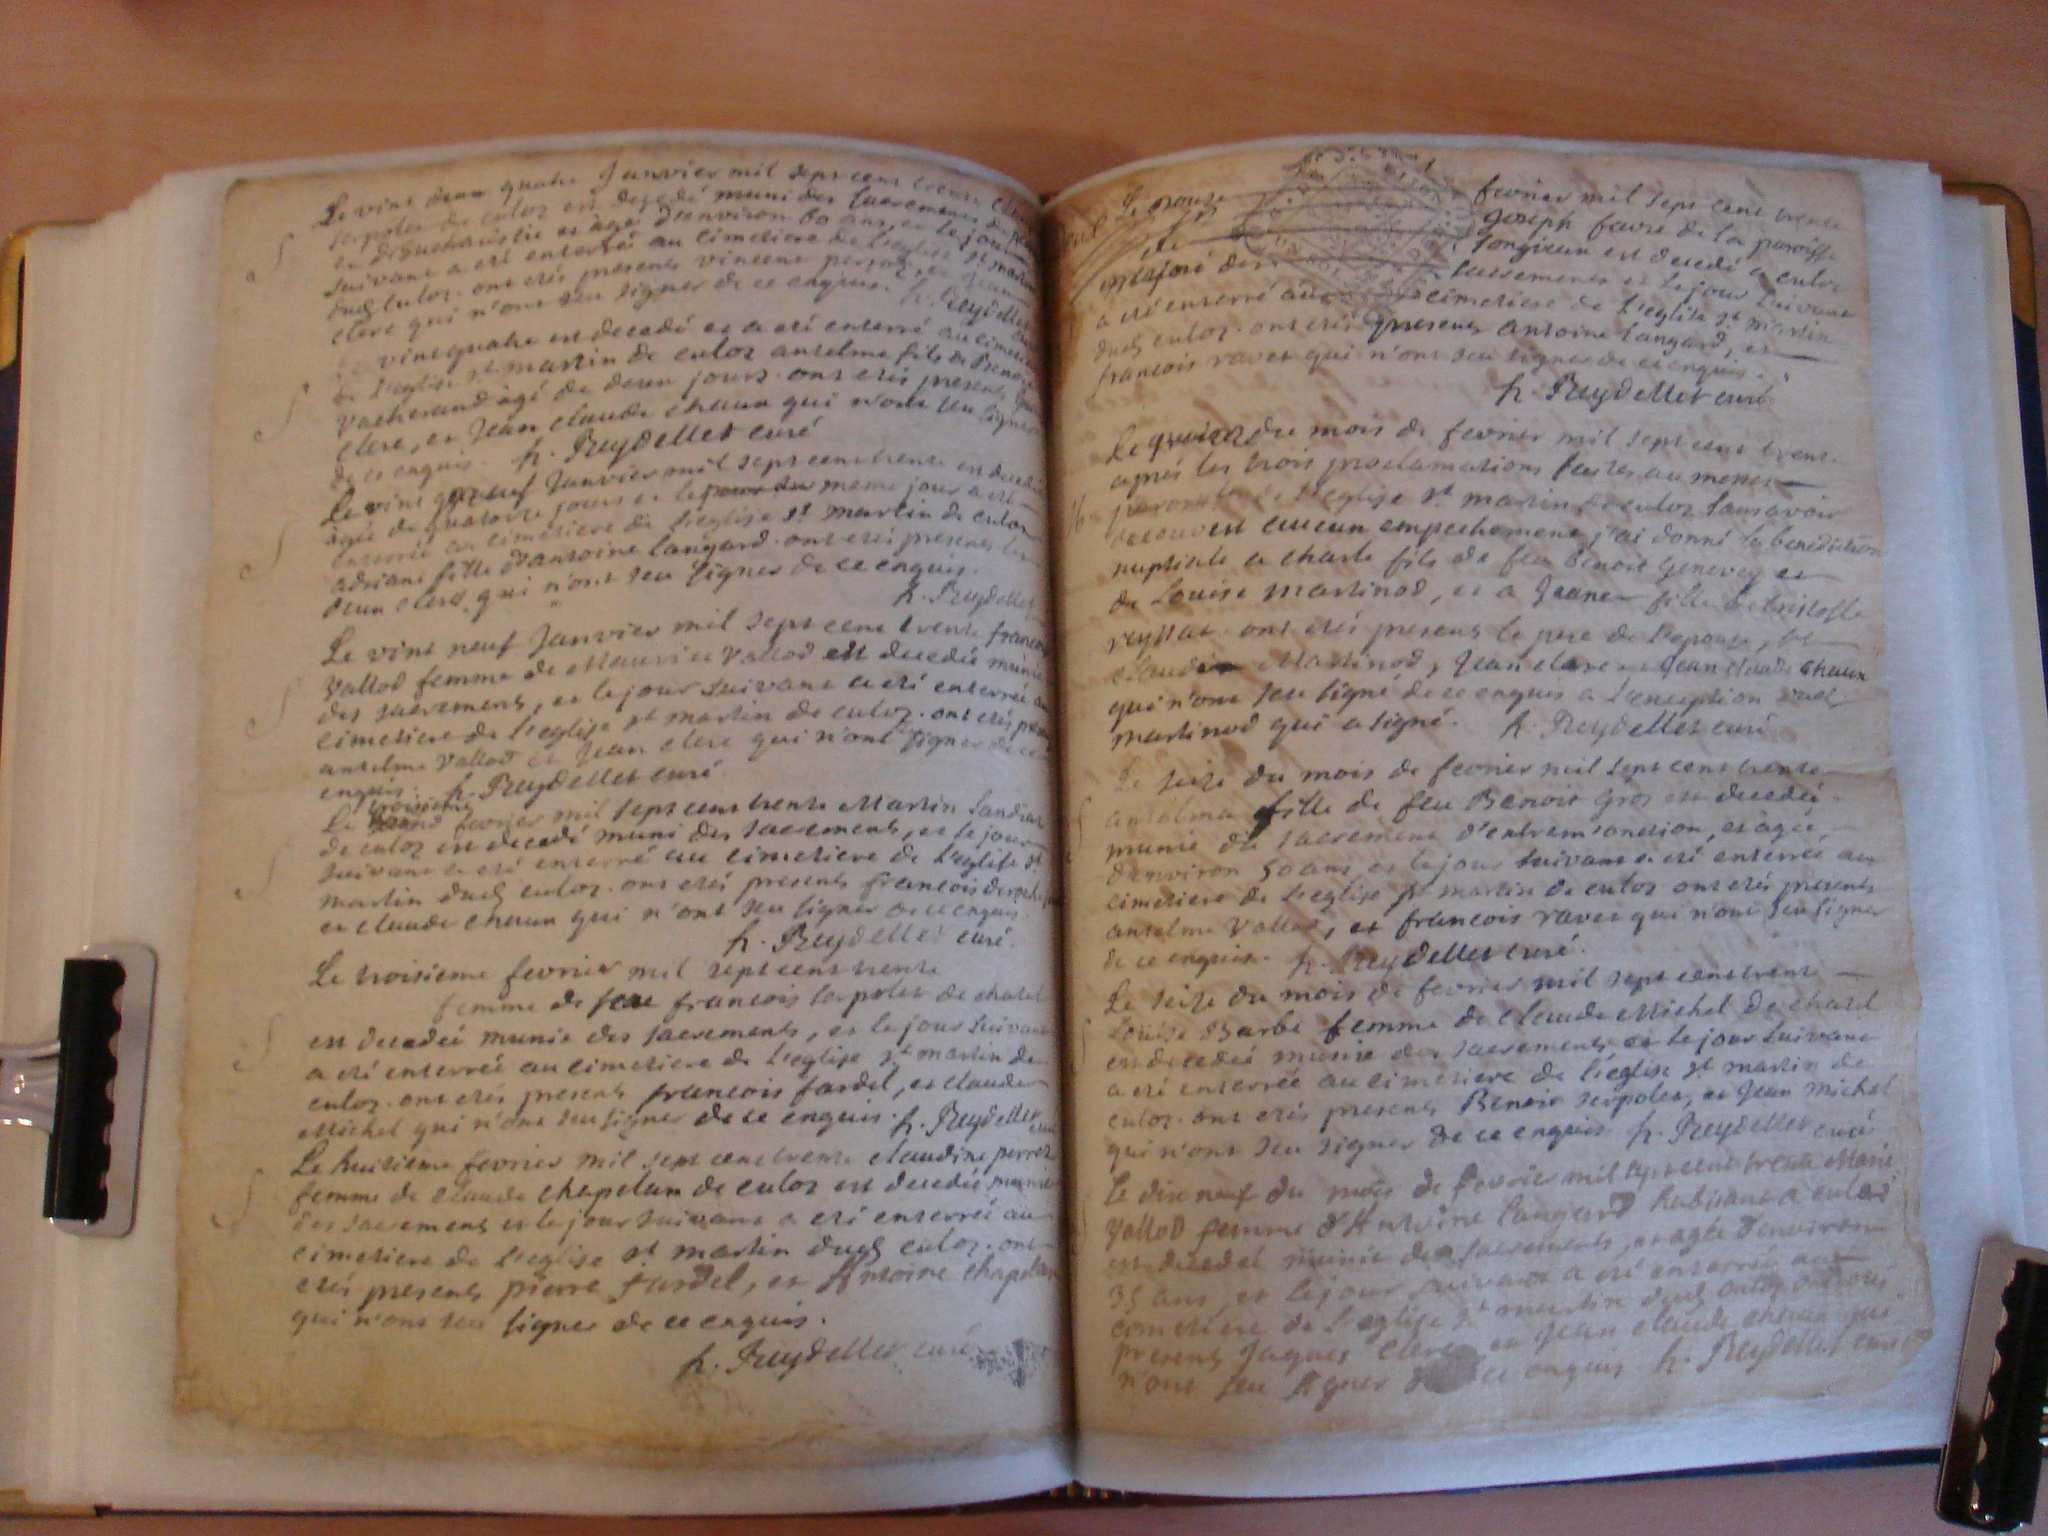 Le vint deux quatre Janvier mil sept cens trente
serpolet de culoz est decedé muni des sacremens de
et d'Eucharistie et agé d'environ 60 ans, et le jour
suivant a eté enterré au cimetiere de l'eglise st martin
dud culoz. ont etés presents vincent et Jean
clerc qui n'ont seu signer de ce enquis. h. Reydellet
vint quatre est decedé et a eté enterré au cimetiere
de l'eglise st martin de culoz anselme fils de Benoit
vacherand agé de deux jours. ont etés presents
clerc, et Jean claude chaux qui n'ont seu signer
de ce enquis. h. Reydellet curé
Le vint Janvier mil sept cens trente est decedée
agée de quatorze jours et le meme jour a eté
enterrée au cimetiere de l'eglise st martin de culoz
adriane fille d'antoine langard. ont etés presents les
deux clercs qui n'ont seu signer de ce enquis.
h. Reydellet
Le vint neuf Janvier mil sept cens trente
vallod femme de Maurice vallod est decedée munie
des sacremens, et le jour suivant a eté enterrée au
cimetiere de l'eglise st martin de culoz. ont etés
anselme vallod et Jean clerc qui n'ont signer de ce
enquis. h. Reydellet curé
Le troisieme fevrier mil sept cens trente Martin
de culoz est decedé muni des sacremens, et le jour
suivant a eté enterré au cimetiere de l'eglise st
martin dud culoz. ont etés presents francois
et claude chaux qui n'ont seu signer de ce enquis
h. Reydellet curé.
Le troisieme fevrier mil sept cens trente
femme de feu francois serpolet de chatel
est decedée munie des sacremens, et le jour suivant
a eté enterrée au cimetiere de l'eglise st martin de
culoz. ont etés presents francois fardel, et claude
Michel qui n'ont seu signer de ce enquis. h. Reydellet curé
Le huitieme fevrier mil sept cens trente claudine
femme de claude chapelan de culoz est decedée munie
des sacremens et le jour suivant a eté enterrée au
cimetiere de l'eglise st martin dud culoz. ont
etés presents pierre fardel, et Antoine chapelan
qui n'ont seu signer de ce enquis.
h. Reydellet curé
Le fevrier mil sept cens trente
Joseph favre de la paroisse
de est decedé a culoz
des sacremens et le jour suivant
a eté enterré au cimetiere de l'eglise st martin
dud culoz. ont etés presents antoine langard, et
francois ravet qui n'ont seu signer de ce enquis.
h. Reydellet curé
Le du mois de fevrier mil sept cens trente
aprés les trois proclamations faites au messes
de l'eglise st martin de culoz sans avoir
decouvert aucun empechement j'ai donné la benediction
nuptiale a charle fils de feu Benoit Genevey et
de Louise Martinod, et a Jeane fille de
ont etés presents le pere de l'epouse, et
Martinod, Jean clerc et Jean claude chaux
qui n'ont seu signé de ce enquis a l'exception dud
martinod qui a signé. h. Reydellet curé
Le seize du mois de fevrier mil sept cens trente
anselma fille de feu Benoit Gros est decedée
munie du sacrement d'extrem'onction, et agée
d'environ 50 ans, et le jour suivant a eté enterrée au
cimetiere de l'eglise st martin de culoz ont etés presents
anselme vallod, et francois ravet qui n'ont seu signer
de ce enquis. h. Reydellet curé.
Le seize du mois de fevrier mil sept cens trente
Louise Barbe femme de claude Michel de chatel
est decedée munie des sacremens et le jour suivant
a eté enterrée au cimetiere de l'eglise st martin de
culoz. ont etés presents Benoit serpolet, et Jean Michel
qui n'ont seu signer de ce enquis h. Reydellet curé
Le dix neuf du mois de fevrier mil sept cens trente Marie
vallod femme d'Antoine langard habitant a culoz
est decedée munie des sacremens, et agée d'environ
35 ans, et le jour suivant a eté enterrée au
cimetiere de l'eglise st martin dud culoz ont etés
presents Jaques clerc et Jean claude chaux qui
n'ont seu signer de ce enquis h. Reydellet curé